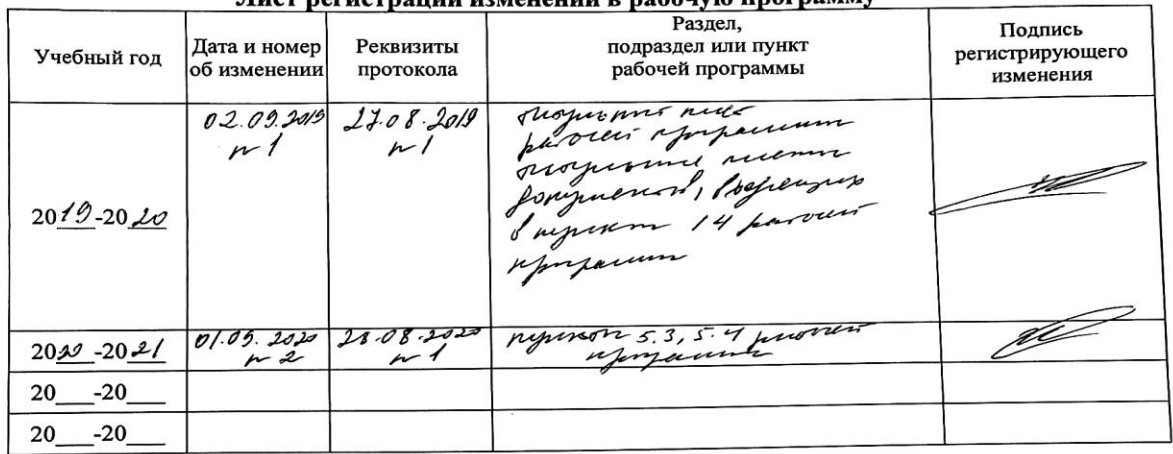 Лист регистрации изменений в рабочую программу
Учебный год
Дата и номер
об изменении
Реквизиты
протокола
Раздел,
подраздел или пункт
рабочей программы
Подпись
регистрирующего
изменения
2019-2020
02.09.2019
№ 1
27.08.2019
№ 1
титульный лист
рабочей программы
титульные листы
документов, входящих
в пункт 14 рабочей
программы
2020-2021
01.09.2020
№ 2
28.08.2020
№ 1
пункты 5.3, 5.4 рабочей
программы
20___-20___
20___-20___